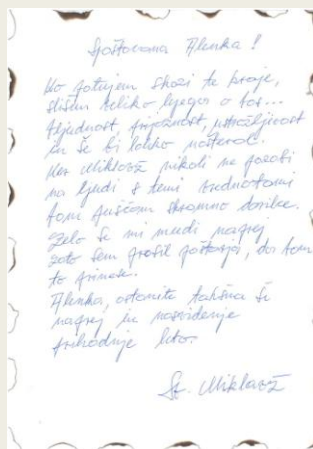 Spoštovana Alenka!
Ko potujem skozi te kraje,
slišim veliko lepega o vas...
Ljudnost, prijaznost, ustrežljivost
in še bi lahko našteval.
Ker Miklavž nikoli ne pozabi
na ljudi s temi vrednotami
vam puščam skromno darilce.
Zelo se mi mudi naprej
zato sem prosil poštarja, da vam
to prinese.
Alenka, ostanite takšna še
naprej in nasvidenje
prihodnje leto.
Sv. Miklavž